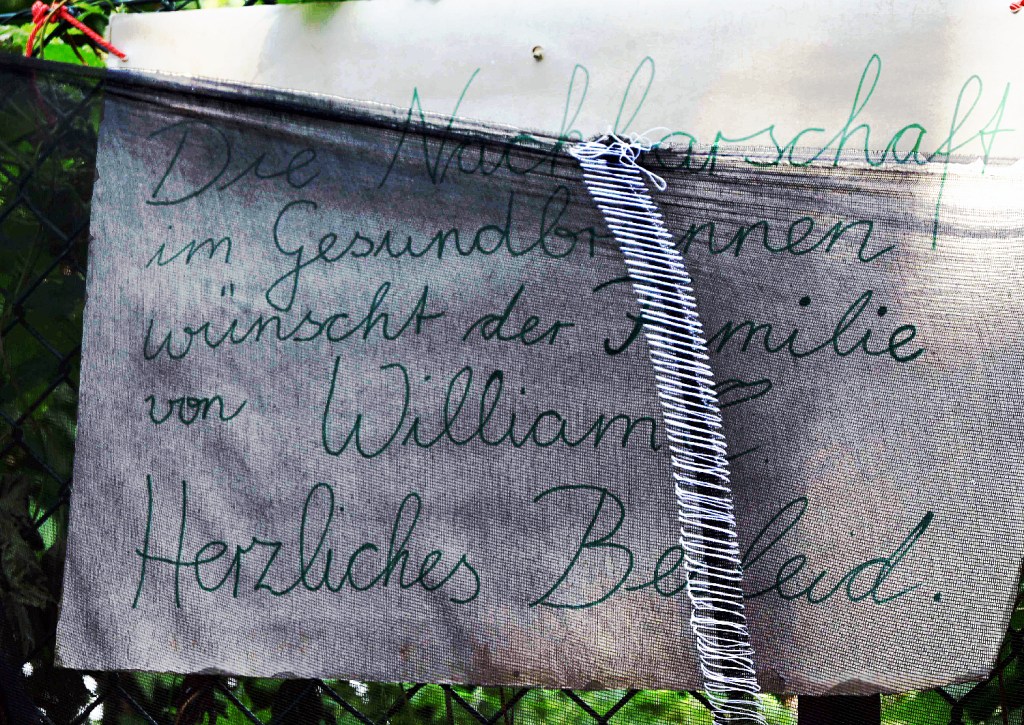 Die Nachbarschaft
im Gesundbrunnen
wünscht der Familie
von William
Herzliches Beileid.